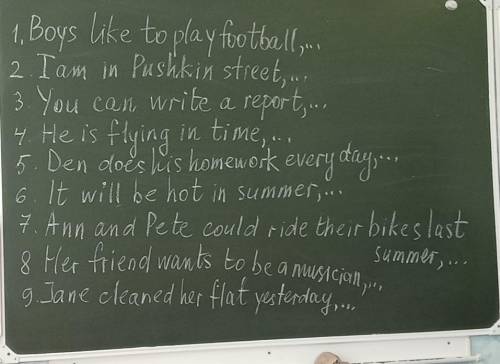 1. Boys like to play football,...
2. I am in Pushkin street,...
3. You can write a report,...
4. He is flying in time,...
5. Den does his homework every day,...
6. It will be hot in summer,...
7. Ann and Pete could ride their bikes last
summer,...
8 Her friend wants to be a musician,...
9. Jane cleaned her flat yesterday,...